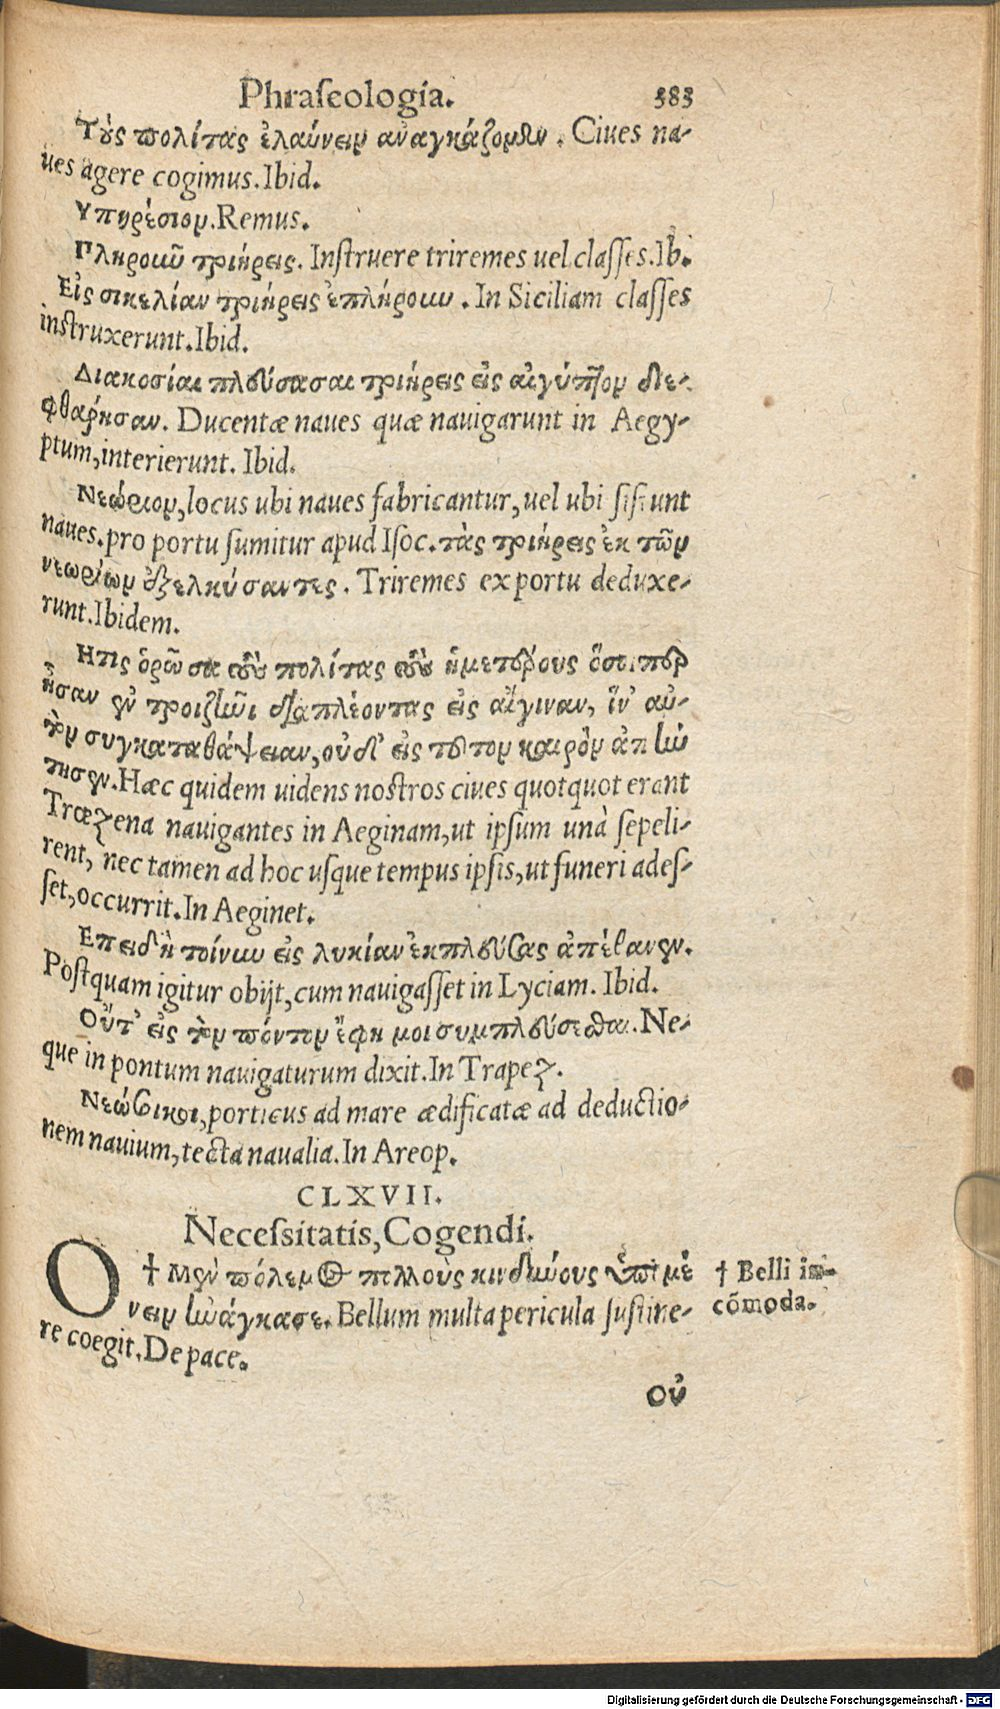 Phraſeologia. 383
Τοὺς πολίτας ἐλαύνειν ἀναγκάζομεν. Ciues na-
ues agere cogimus. Ibid.
Υπηρέσιον. Remus.
Πληροῦν τριήρεις. Inſtruere triremes uel claſſes. Ib.
Εἰς σικελίαν τριήρεις ἐπλήρουν. In Siciliam claſſes
inſtruxerunt. Ibid.
Διακοσίαι πλεύσασαι τριήρεις εἰς αἰγύπτον διε-
φθάρησαν. Ducentæ naues quæ nauigarunt in Aegy-
ptum, interierunt. Ibid.
Νεώριον, locus ubi naues fabricantur, uel ubi ſiſtunt
naues. pro portu ſumitur apud Iſoc. τὰς τριήρεις ἐκ τῶν
νεωρίων ἐξελκύσαντες. Triremes ex portu deduxe-
runt. Ibidem.
Ητις ὁρῶσα τοὺς πολίτας τοὺς ἡμετέρους ὅσοιπερ
ἦσαν ἐν τροιζῆνι διαπλέοντας εἰς αἴγιναν, ἵν' αὐ-
τὸν συγκαταθάψειαν, οὐδ' εἰς τοῦτον καιρὸν ἀπήν
τησεν. Hæc quidem uidens noſtros ciues quotquot erant
Trœzena nauigantes in Aeginam, ut ipſum unà ſepeli-
rent, nec tamen ad hoc uſque tempus ipſis, ut funeri adeſ-
ſet, occurrit. In Aeginet.
Επειδὴ τοίνυν εἰς λυκίαν ἐκπλεύσας ἀπέθανεν.
Poſtquam igitur obijt, cum nauigaſſet in Lyciam. Ibid.
Οὔτ' εἰς τὸν πόντον ἔφη μοι συμπλεύσεσθαι. Ne-
que in pontum nauigaturum dixit. In Trapez.
Νεώσοικοι, porticus ad mare ædificatæ ad deductio-
nem nauium, tecta naualia. In Areop.
CLXVII.
Neceſsitatis, Cogendi.
O † Μὲν πόλεμος πολλοὺς κινδύνους ὑπομέ † Belli in-
νειν ἠνάγκασε. Bellum multa pericula ſuſtine- cõmoda.
re coegit. De pace.
Οὐ
Digitalisierung gefördert durch die Deutsche Forschungsgemeinschaft - DFG